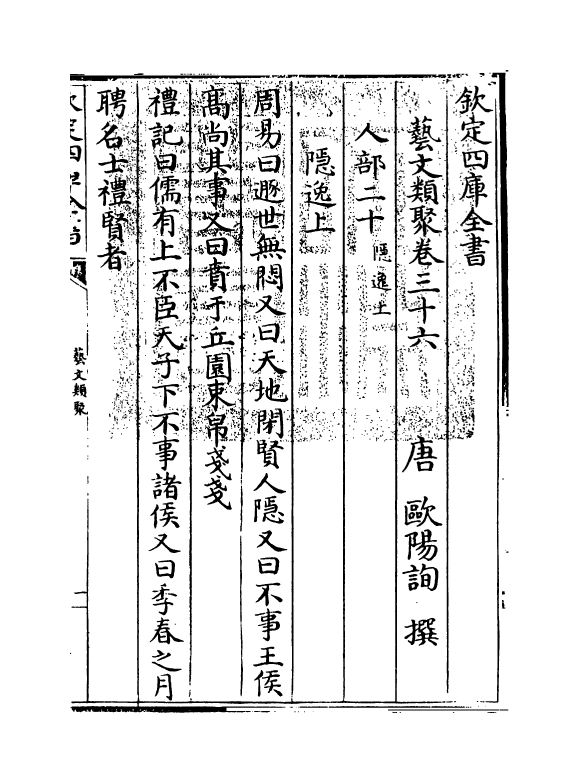 欽定四庫全書
藝文類聚卷三十六 唐 歐陽詢 撰
人部二十 隱逸上
隱逸上
周易曰遯世無悶又曰天地閉賢人隱又曰不事王侯
高尚其事又曰賁于丘園束帛戔戔
禮記曰儒有上不臣天子下不事諸侯又曰季春之月
聘名士禮賢者
欽定四庫全書
藝文類聚